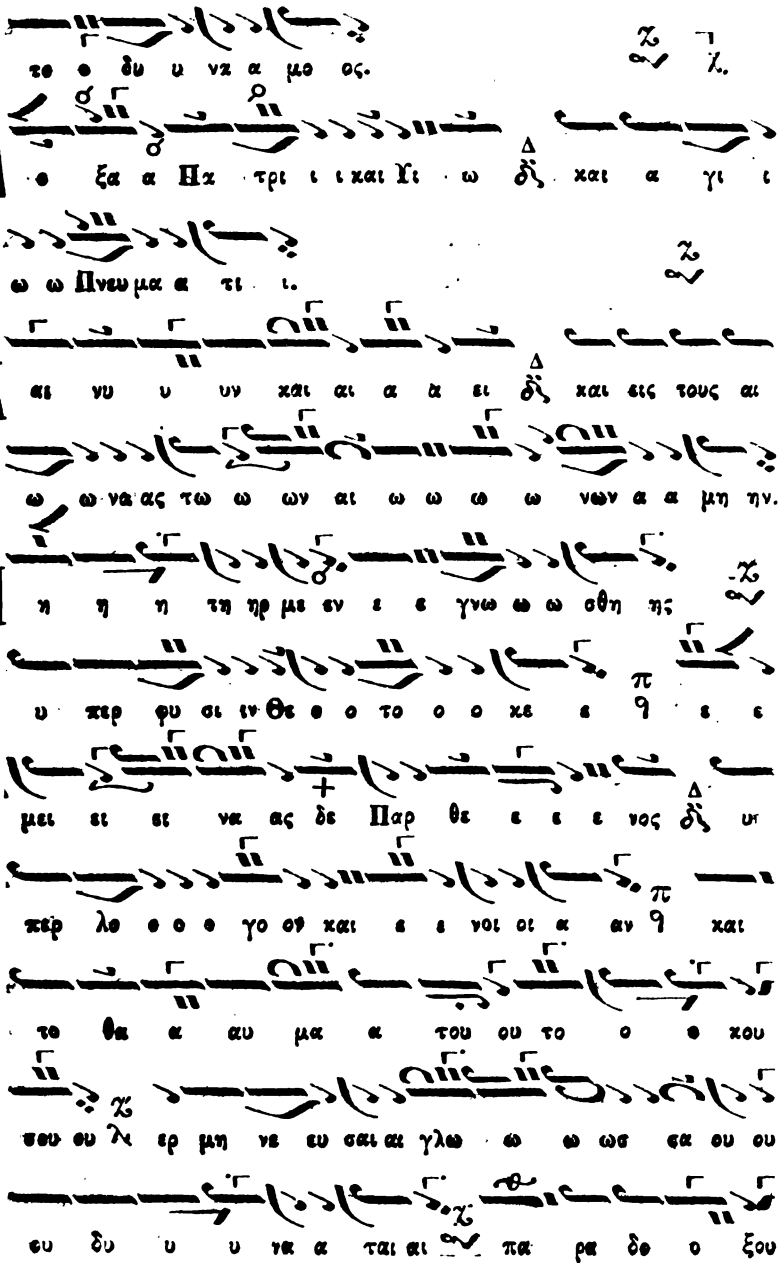 το ο δυ υ να α μο ος.
ο ξα α Πα τρι ι ι και Υι ω και α γι ι
ω ω Πνευ μα α τι ι.
αι νυ υ υν και αι α α ει και εις τους αι
ω ω να ας τω ω ων αι ω ω ω ω νων α α μη ην.
η η η τη ηρ με εν ε ε γνω ω ω σθη ης
υ περ φυ σι ιν Θε ο ο το ο ο κε ε ε ε
μει ει ει να ας δε Παρ θε ε ε ε νος υ
περ λο ο ο ο γο ον και ε ε νοι οι α αν και
το θα α αυ μα α του ου το ο ο κου
σου ου ερ μη νε ευ σαι αι γλω ω ω ωσ σα ου ου
ου δυ υ υ να α ται αι πα ρα δο ο ξου